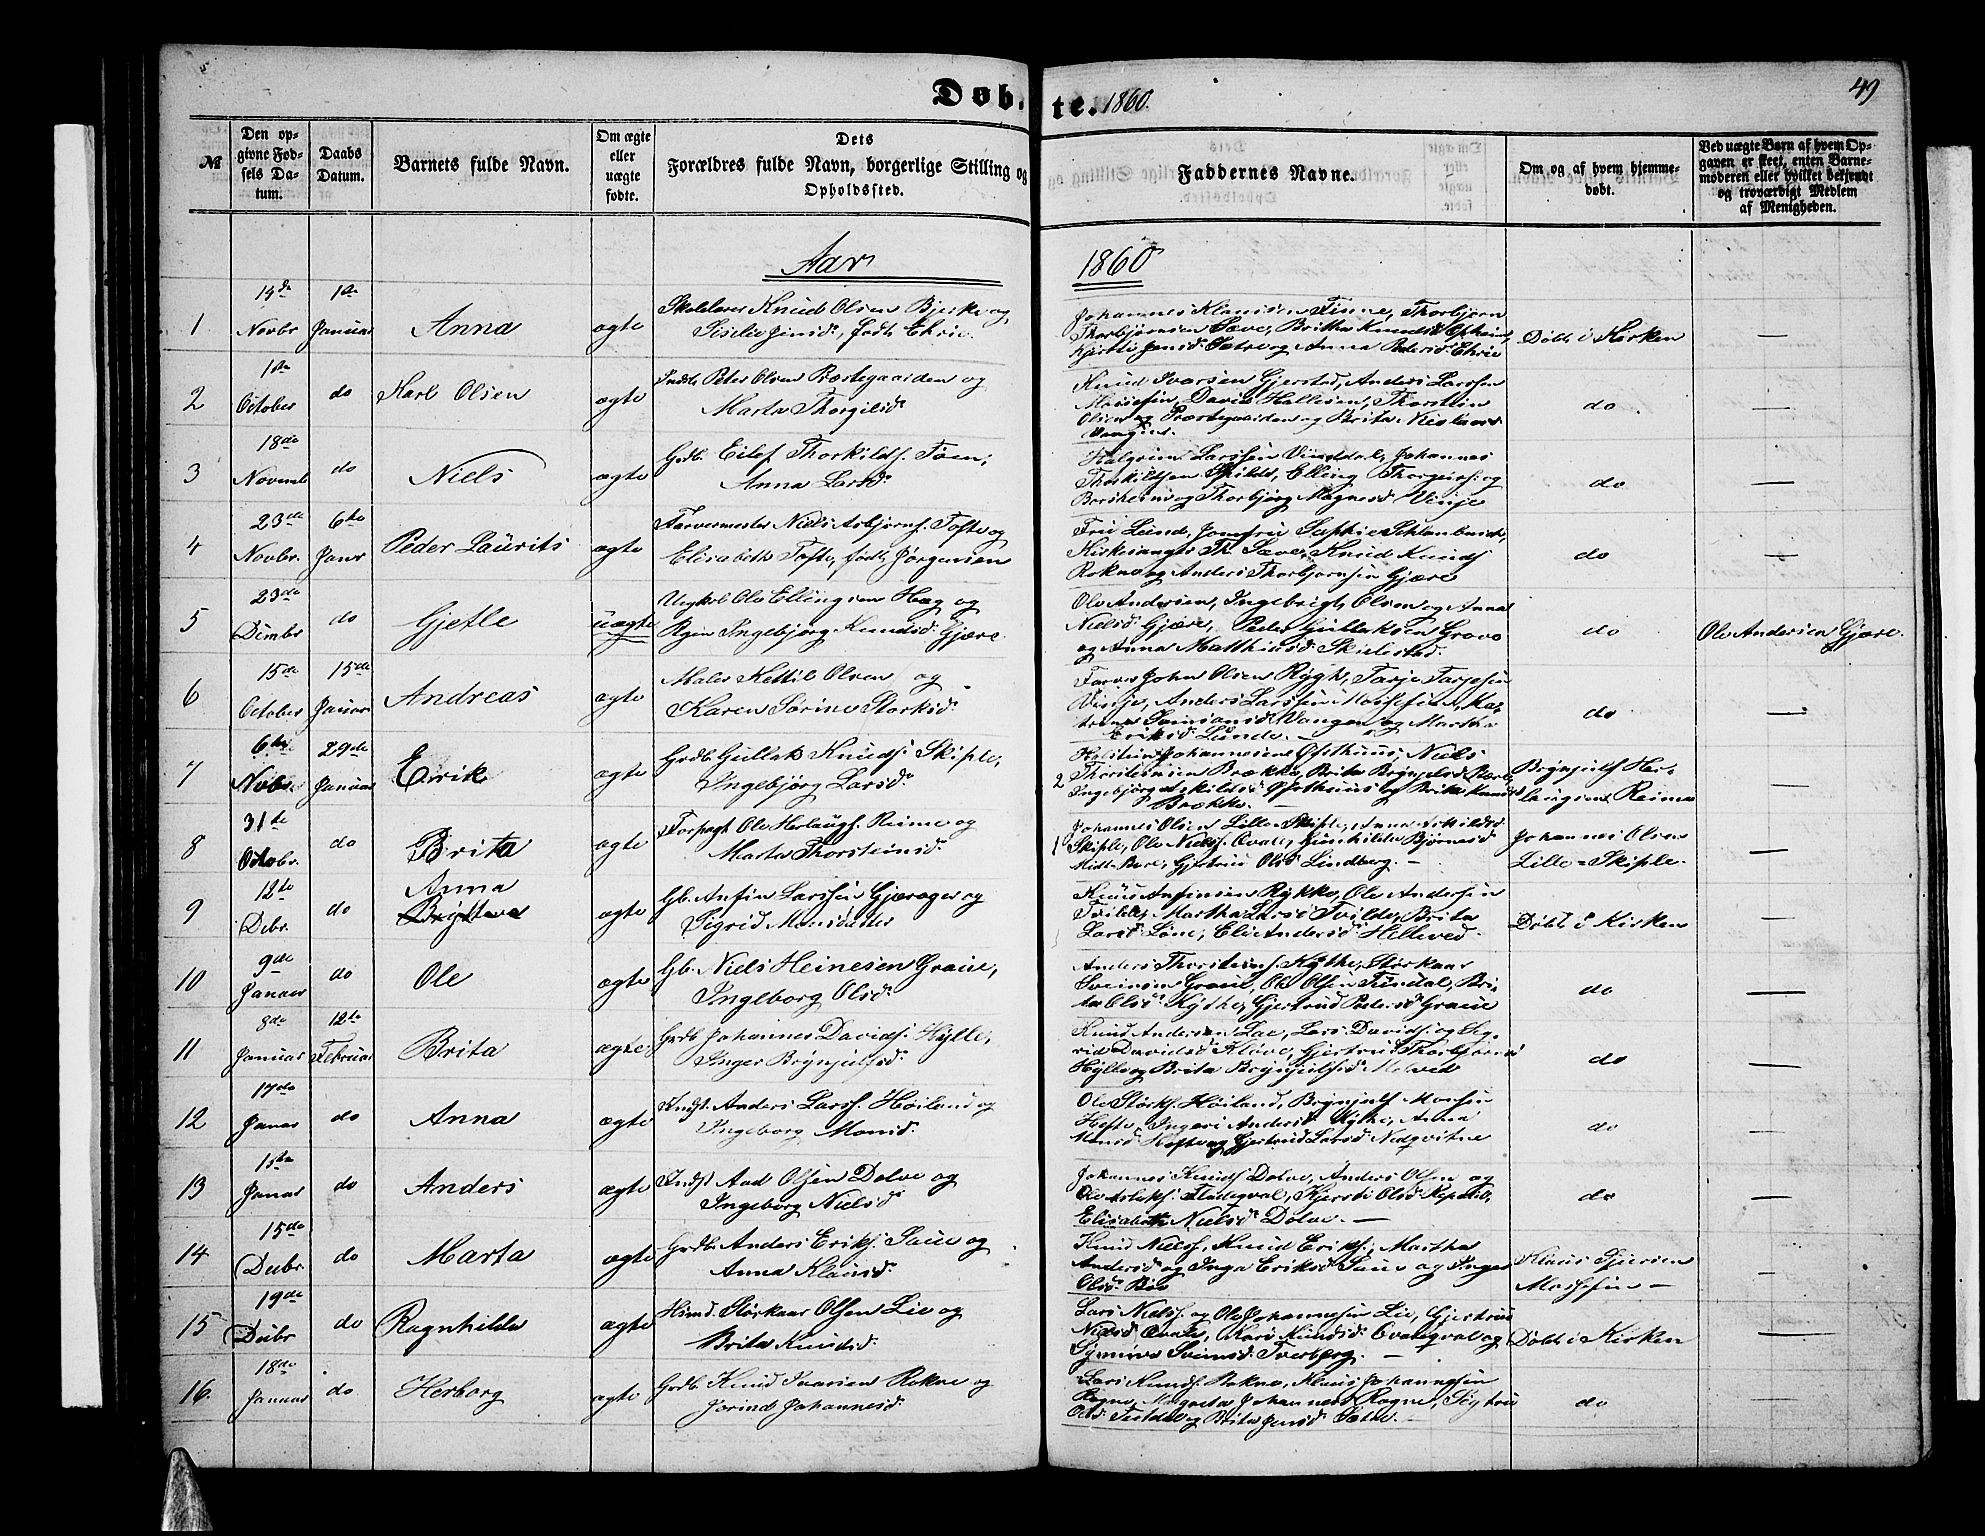 49
Døbte. 1860.
№
Den op-
givne Fød-
sels Da-
tum.
Daabs
Datum.
Barnets fulde Navn.
Om ægte
eller
uægte
fødte.
Dets
Forældres fulde Navn, borgerlige Stilling og
Opholdssted.
Faddernes Navne.
Om og af hvem hjemme-
døbt.
Ved uægte Barn af hvem Op-
gaven er skeet, enten Barne-
moderen eller hvilket bekjendt
og troværdigt Medlem
af Menigheden.
Aar 1860
1
14de
Novbr
1ste
Januar
Anna
ægte
Skolelærer Knud Olsen Bjerke og
Siselie Jensd. født Ehrie.
Johannes Klausen Finne, Thorbjørn
Thorbjørnsen Sæve, Britha Knudsd Opheim,
Kjersti Jensd. Sætre og Anna Pedersd. Ehrie
Døbt i Kirken
2
1ste
October
do
Karl Olsen
ægte
Indst. Peter Olsen Præstegaarden og
Marta Thorgilsd.
Knud Ivarsen Gjerstad, Anders Larssen
Mossefin, David Hallesen, Thorstein
Olsen og Præstegaarden og Brita
Vangen.
do
3
18de
Novemb
do
Niels
ægte
Grdb. Eilef Thorkilds. Tøen,
Anna Larsd.
Halgrim Larssen Vinddal, Johannes
Thorkildsen Skilds, Elling Thorgiers. og
Borsheim og Thorbjørg Magnesd. Vinje
do
4
23de
Novbr.
6te
Janr
Peder Laurits
ægte
Farvermester Niels Asbjørns. Tofte og
Elisabeth Tofte, født Jørgensen
Fru Lund, Jomfru Sophie
Kirkesanger Th. Sæve, Knud Knuds
Rokne og Anders Thorbjørnsen Gjære
do
5
23de
Dcmbr
do
Gjetle
uægte
Ungkol Ole Ellingsen Hæg og
Pgen Ingebjørg Knudsd. Gjære
Ole Andersen, Ingebrigt Olsen og Anna
Nielsd Gjære, Peder Gulleksen Grove
og Anna Matthiasd. Skielestad.
do
Ole Andersen Gjære.
6
15de
October
15de
Januar
Andreas
ægte
Maler Kettil Olsen og
Karen Sørine Storksd.
Farver John Olsen Rygh, Tarje Tarjesen
Vinje, Anders Larssen Mossefin, Ka-
trine Vangen og Martha
Eriksd Lunde.
do
7
6te
Novbr.
29de
Januar
Eirik
ægte
Grdb. Gullak Knuds. Skiple,
Ingebjørg Larsd.
2
Johannesen Ofsthuus, Niels
Thorsteinsen Brække, Brita Brynjelsd.
Ingebjørg Ofsthuus og Brita Knudsd
Brække.
Brynjulf Her-
laugsen Reime
8
31te
Octobr.
do
Brita
ægte
Forpagt Ole Herlaugs. Reime og
Marta Thorsteinsd
1
Johannes Olsen Lille Skiple, Anna
Skiple, Ole Niels. Qvale, Gunhilda Bjørnesd
Midt-Bøe, Gjertrud Olsd Lindberg.
Johannes Olsen
Lille-Skiple.
9
12te
Debr.
do
Anna
Brytteva
ægte
Gb. Anfin Larssen Gjærager og
Sigrid Monsdatter
Knud Anfinsen Rykke, Ole Andersen
Tvilde, Martha Larsd Tvilde, Brita
Larsd Løne, Eli Andersd. Helleved.
Døbt i Kirken
10
9de
Januar
do
Ole
ægte
Gb. Niels Heinesen Graue,
Ingeborg Olsd.
Anders Thorsteins. Kythe, Størkaar
Sveinsen Graue, Ole Olsen Tundal, Bri-
ta Olsd. Kythe, Gjertrud Pedersd. Graue
do
11
8de
Januar
12te
Februar
Brita
ægte
Grdb Johannes Davids. Hylle,
Inger Brynjulfsd
Knud Andersen Lae, Lars Davids. og Sig-
rid Davidsd Kløve, Gjertrud Thorbjørnsd
Hylle og Brita Brynjulfsd. Molved
do
12
17de
Januar
do
Anna
ægte
Indst. Anders Larss. Høiland og
Ingeborg Monsd.
Ole Størks. Høiland, Brynjulf Monsen
Hefte, Ingeri Andersd. Kythe, Anna
Monsd Hefte og Gjertrud Larsd Nedqvitne
do
13
15de
Januar
do
Anders
ægte
Indst Aad Olsen Dolve og
Ingeborg Nielsd
Johannes Knuds. Dolve, Anders Olsen og
Ole Flateqval, Kjersti Olsd
Elisabeth Nielsd Dolve.
do
14
15de
Debr.
do
Marta
ægte
Grdb. Anders Eriks. Saue og
Anna Klausd.
Knud Niels., Knud Eriks., Martha
Andersd og Inga Eriksd Saue og Inger
Olsd. Bøe
Klaus Sjursen
Mossefin
15
19de
Debr
do
Ragnhilda
ægte
Huusmd. Størkaar Olsen Lie og
Brita Knudsd.
Lars Niels. og Ole Johannesen Lie, Gjertrud
Nielsd Qvale, Kari Knudsd. Qvaleqval og
Synneva Sveinsd. Tverberg.
Døbt i Kirken
16
18de
Januar
do
Herborg
ægte
Grdb. Knud Ivarsen Rokne og
Jorind Johannesd.
Lars Knuds. Rokne, Klaus Johannesen
Rogne, Magreta Johannesd Rogne, Sigtrud
Olsd. og Brita Jensd. Sætre.
do